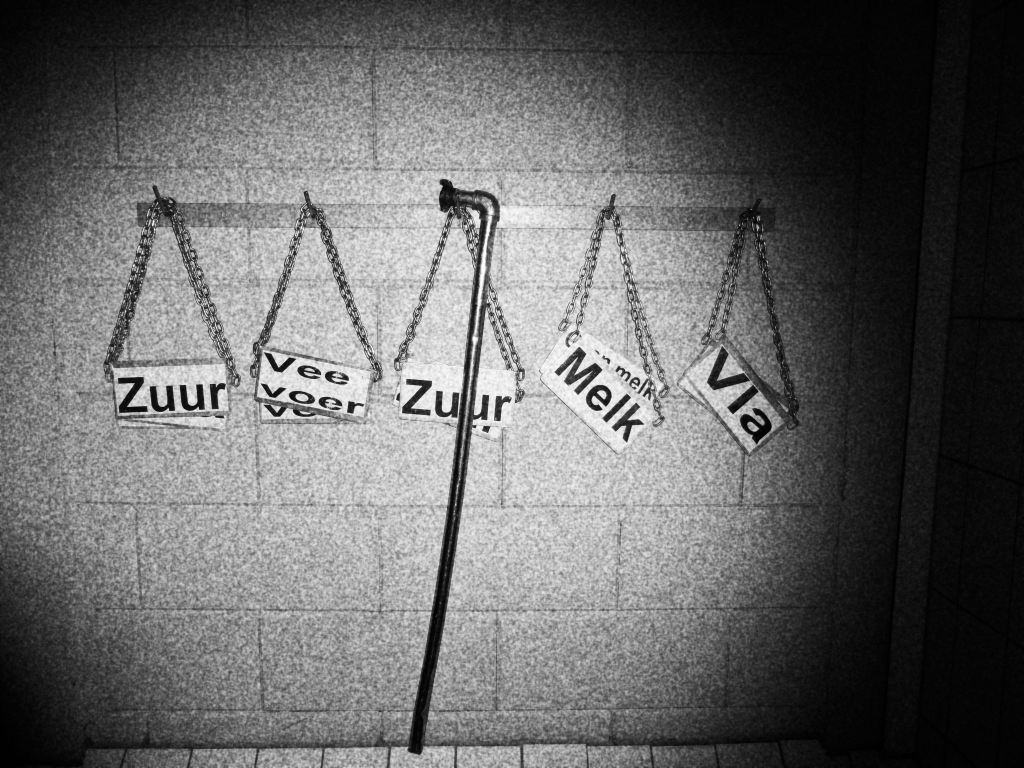 Zuur
Vee
voer
Zuur
melk
Melk
Vla